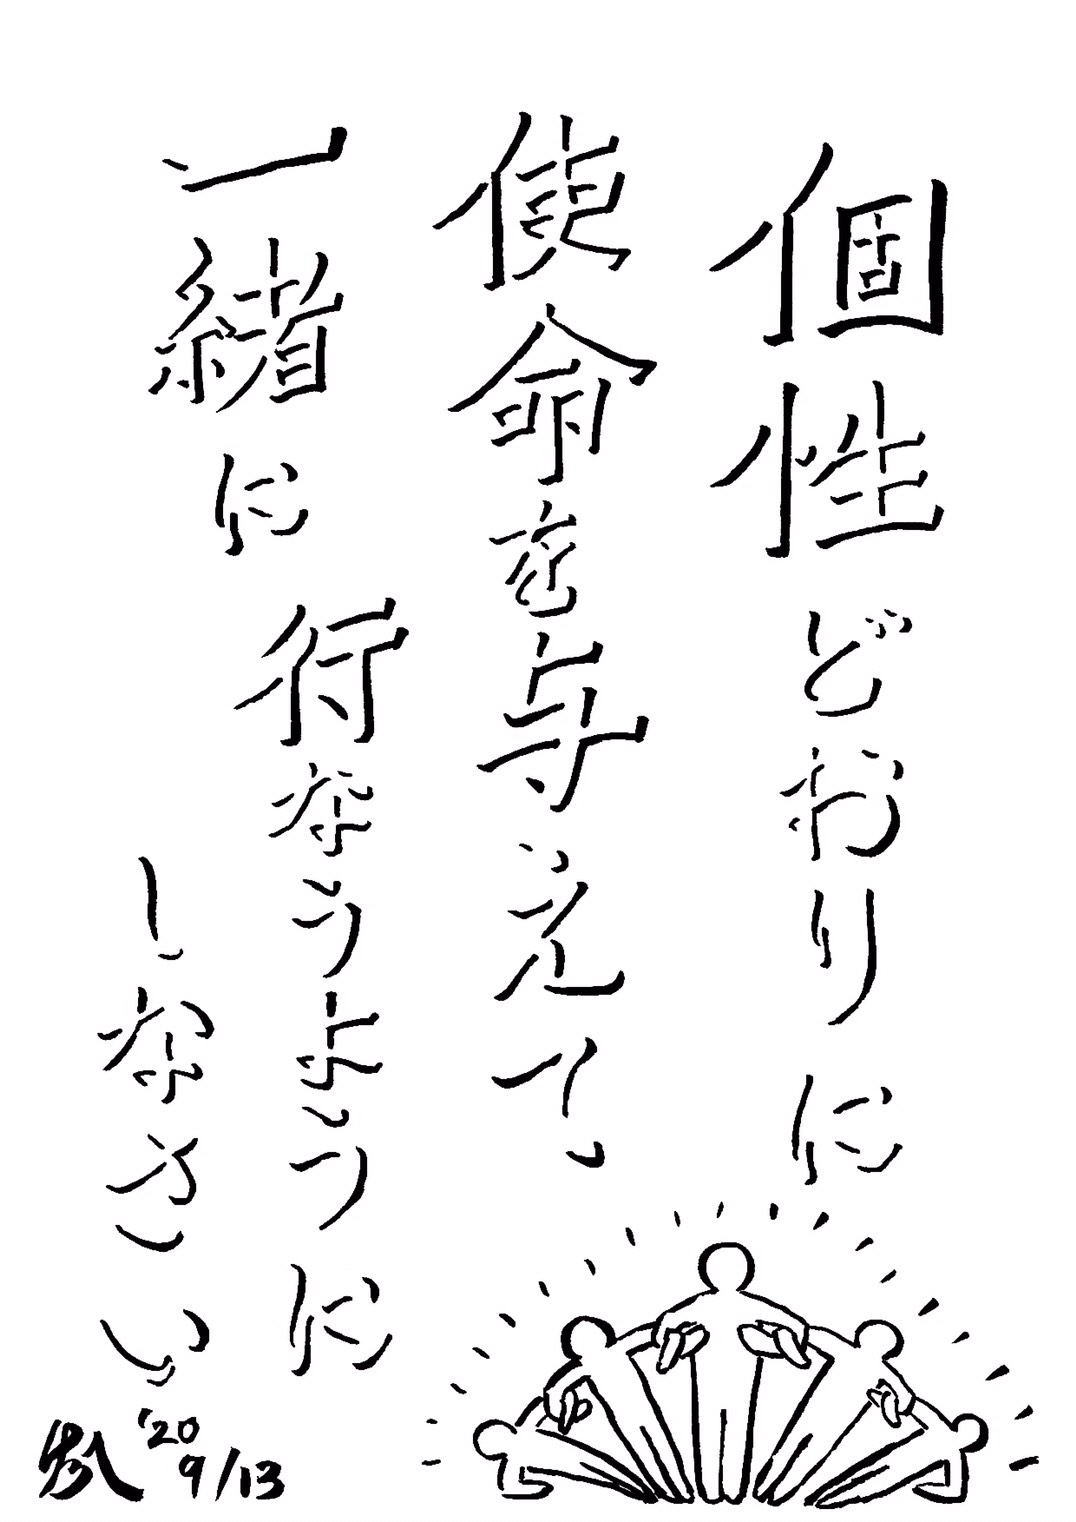 個性どおりに
使命を与えて
一緒に
行なうように
しなさい
'20
9/13